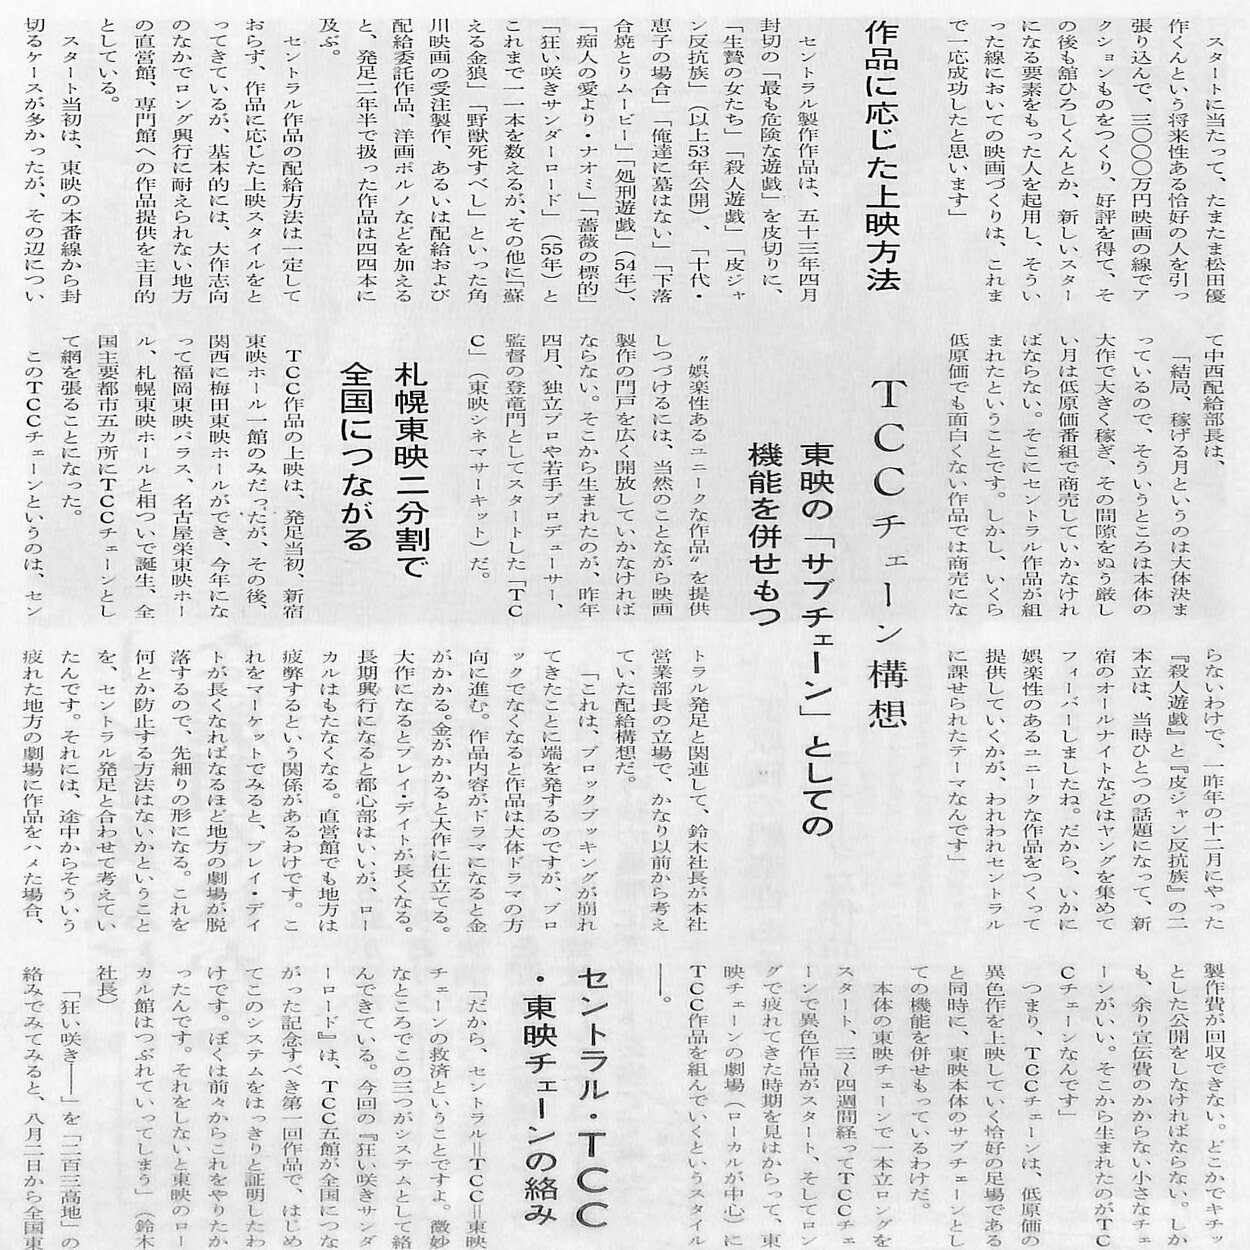 スタートに当たって、たまたま松田優
作くんという将来性ある恰好の人を引っ
張り込んで、三〇〇〇万円映画の線でア
クションものをつくり、好評を得て、そ
の後も舘ひろしくんとか、新しいスター
になる要素をもった人を起用し、そうい
った線においての映画づくりは、これま
で一応成功したと思います」
作品に応じた上映方法
セントラル製作作品は、五十三年四月
封切の「最も危険な遊戯」を皮切りに、
「生贄の女たち」「殺人遊戯」「皮ジャ
ン反抗族」（以上53年公開）、「十代・
恵子の場合」「俺達に墓はない」「下落
合焼とりムービー」「処刑遊戯」（54年）、
「痴人の愛より・ナオミ」「薔薇の標的」
「狂い咲きサンダーロード」（55年）と
これまで一一本を数えるが、その他に「蘇
える金狼」「野獣死すべし」といった角
川映画の受注製作、あるいは配給および
配給委託作品、洋画ポルノなどを加える
と、発足二年半で扱った作品は四四本に
及ぶ。
セントラル作品の配給方法は一定して
おらず、作品に応じた上映スタイルをと
ってきているが、基本的には、大作志向
のなかでロング興行に耐えられない地方
の直営館、専門館への作品提供を主目的
としている。
スタート当初は、東映の本番線から封
切るケースが多かったが、その辺につい
て中西配給部長は、
「結局、稼げる月というのは大体決ま
っているので、そういうところは本体の
大作で大きく稼ぎ、その間隙をぬう厳し
い月は低原価番組で商売していかなけれ
ばならない。そこにセントラル作品が組
まれたということです。しかし、いくら
低原価でも面白くない作品では商売にな
らないわけで、一昨年の十二月にやった
『殺人遊戯』と『皮ジャン反抗族』の二
本立は、当時ひとつの話題になって、新
宿のオールナイトなどはヤングを集めて
フィーバーしましたね。だから、いかに
娯楽性のあるユニークな作品をつくって
提供していくかが、われわれセントラル
に課せられたテーマなんです」
TCCチェーン構想
東映の「サブチェーン」としての
機能を併せもつ
〝娯楽性あるユニークな作品〟を提供
しつづけるには、当然のことながら映画
製作の門戸を広く開放していかなければ
ならない。そこから生まれたのが、昨年
四月、独立プロや若手プロデューサー、
監督の登竜門としてスタートした「TC
C」（東映シネマサーキット）だ。
札幌東映二分割で
全国につながる
TCC作品の上映は、発足当初、新宿
東映ホール一館のみだったが、その後、
関西に梅田東映ホールができ、今年にな
って福岡東映パラス、名古屋栄東映ホー
ル、札幌東映ホールと相ついで誕生、全
国主要都市五カ所にTCCチェーンとし
て網を張ることになった。
このTCCチェーンというのは、セン
トラル発足と関連して、鈴木社長が本社
営業部長の立場で、かなり以前から考え
ていた配給構想だ。
「これは、ブロックブッキングが崩れ
てきたことに端を発するのですが、ブロ
ックでなくなると作品は大体ドラマの方
向に進む。作品内容がドラマになると金
がかかる。金がかかると大作に仕立てる。
大作になるとプレイ・デイトが長くなる。
長期興行になると都心部はいいが、ロー
カルはもたなくなる。直営館でも地方は
疲弊するという関係があるわけです。こ
れをマーケットでみると、プレイ・デイ
トが長くなればなるほど地方の劇場が脱
落するので、先細りの形になる。これを
何とか防止する方法はないかということ
を、セントラル発足と合わせて考えてい
たんです。それには、途中からそういう
疲れた地方の劇場に作品をハメた場合、
製作費が回収できない。どこかでキチッ
とした公開をしなければならない。しか
も、余り宣伝費のかからない小さなチェ
ーンがいい。そこから生まれたのがTC
Cチェーンなんです」
つまり、TCCチェーンは、低原価の
異色作を上映していく恰好の足場である
と同時に、東映本体のサブチェーンとし
ての機能を併せもっているわけだ。
本体の東映チェーンで一本立ロングを
スタート、三〜四週間経ってTCCチェ
ーンで異色作品がスタート、そしてロン
グで疲れてきた時期を見はからって、東
映チェーンの劇場（ローカルが中心）に
TCC作品を組んでいくというスタイル
――。
セントラル・TCC
・東映チェーンの絡み
「だから、セントラル＝TCC＝東映
チェーンの救済ということですよ。微妙
なところでこの三つがシステムとして絡
んできている。今回の『狂い咲きサンダ
ーロード』は、TCC五館が全国につな
がった記念すべき第一回作品で、はじめ
てこのシステムをはっきりと証明したわ
けです。ぼくは前々からこれをやりたか
ったんです。それをしないと東映のロー
カル館はつぶれていってしまう」（鈴木
社長）
「狂い咲き――」を「二百三高地」の
絡みでみてみると、八月二日から全国東